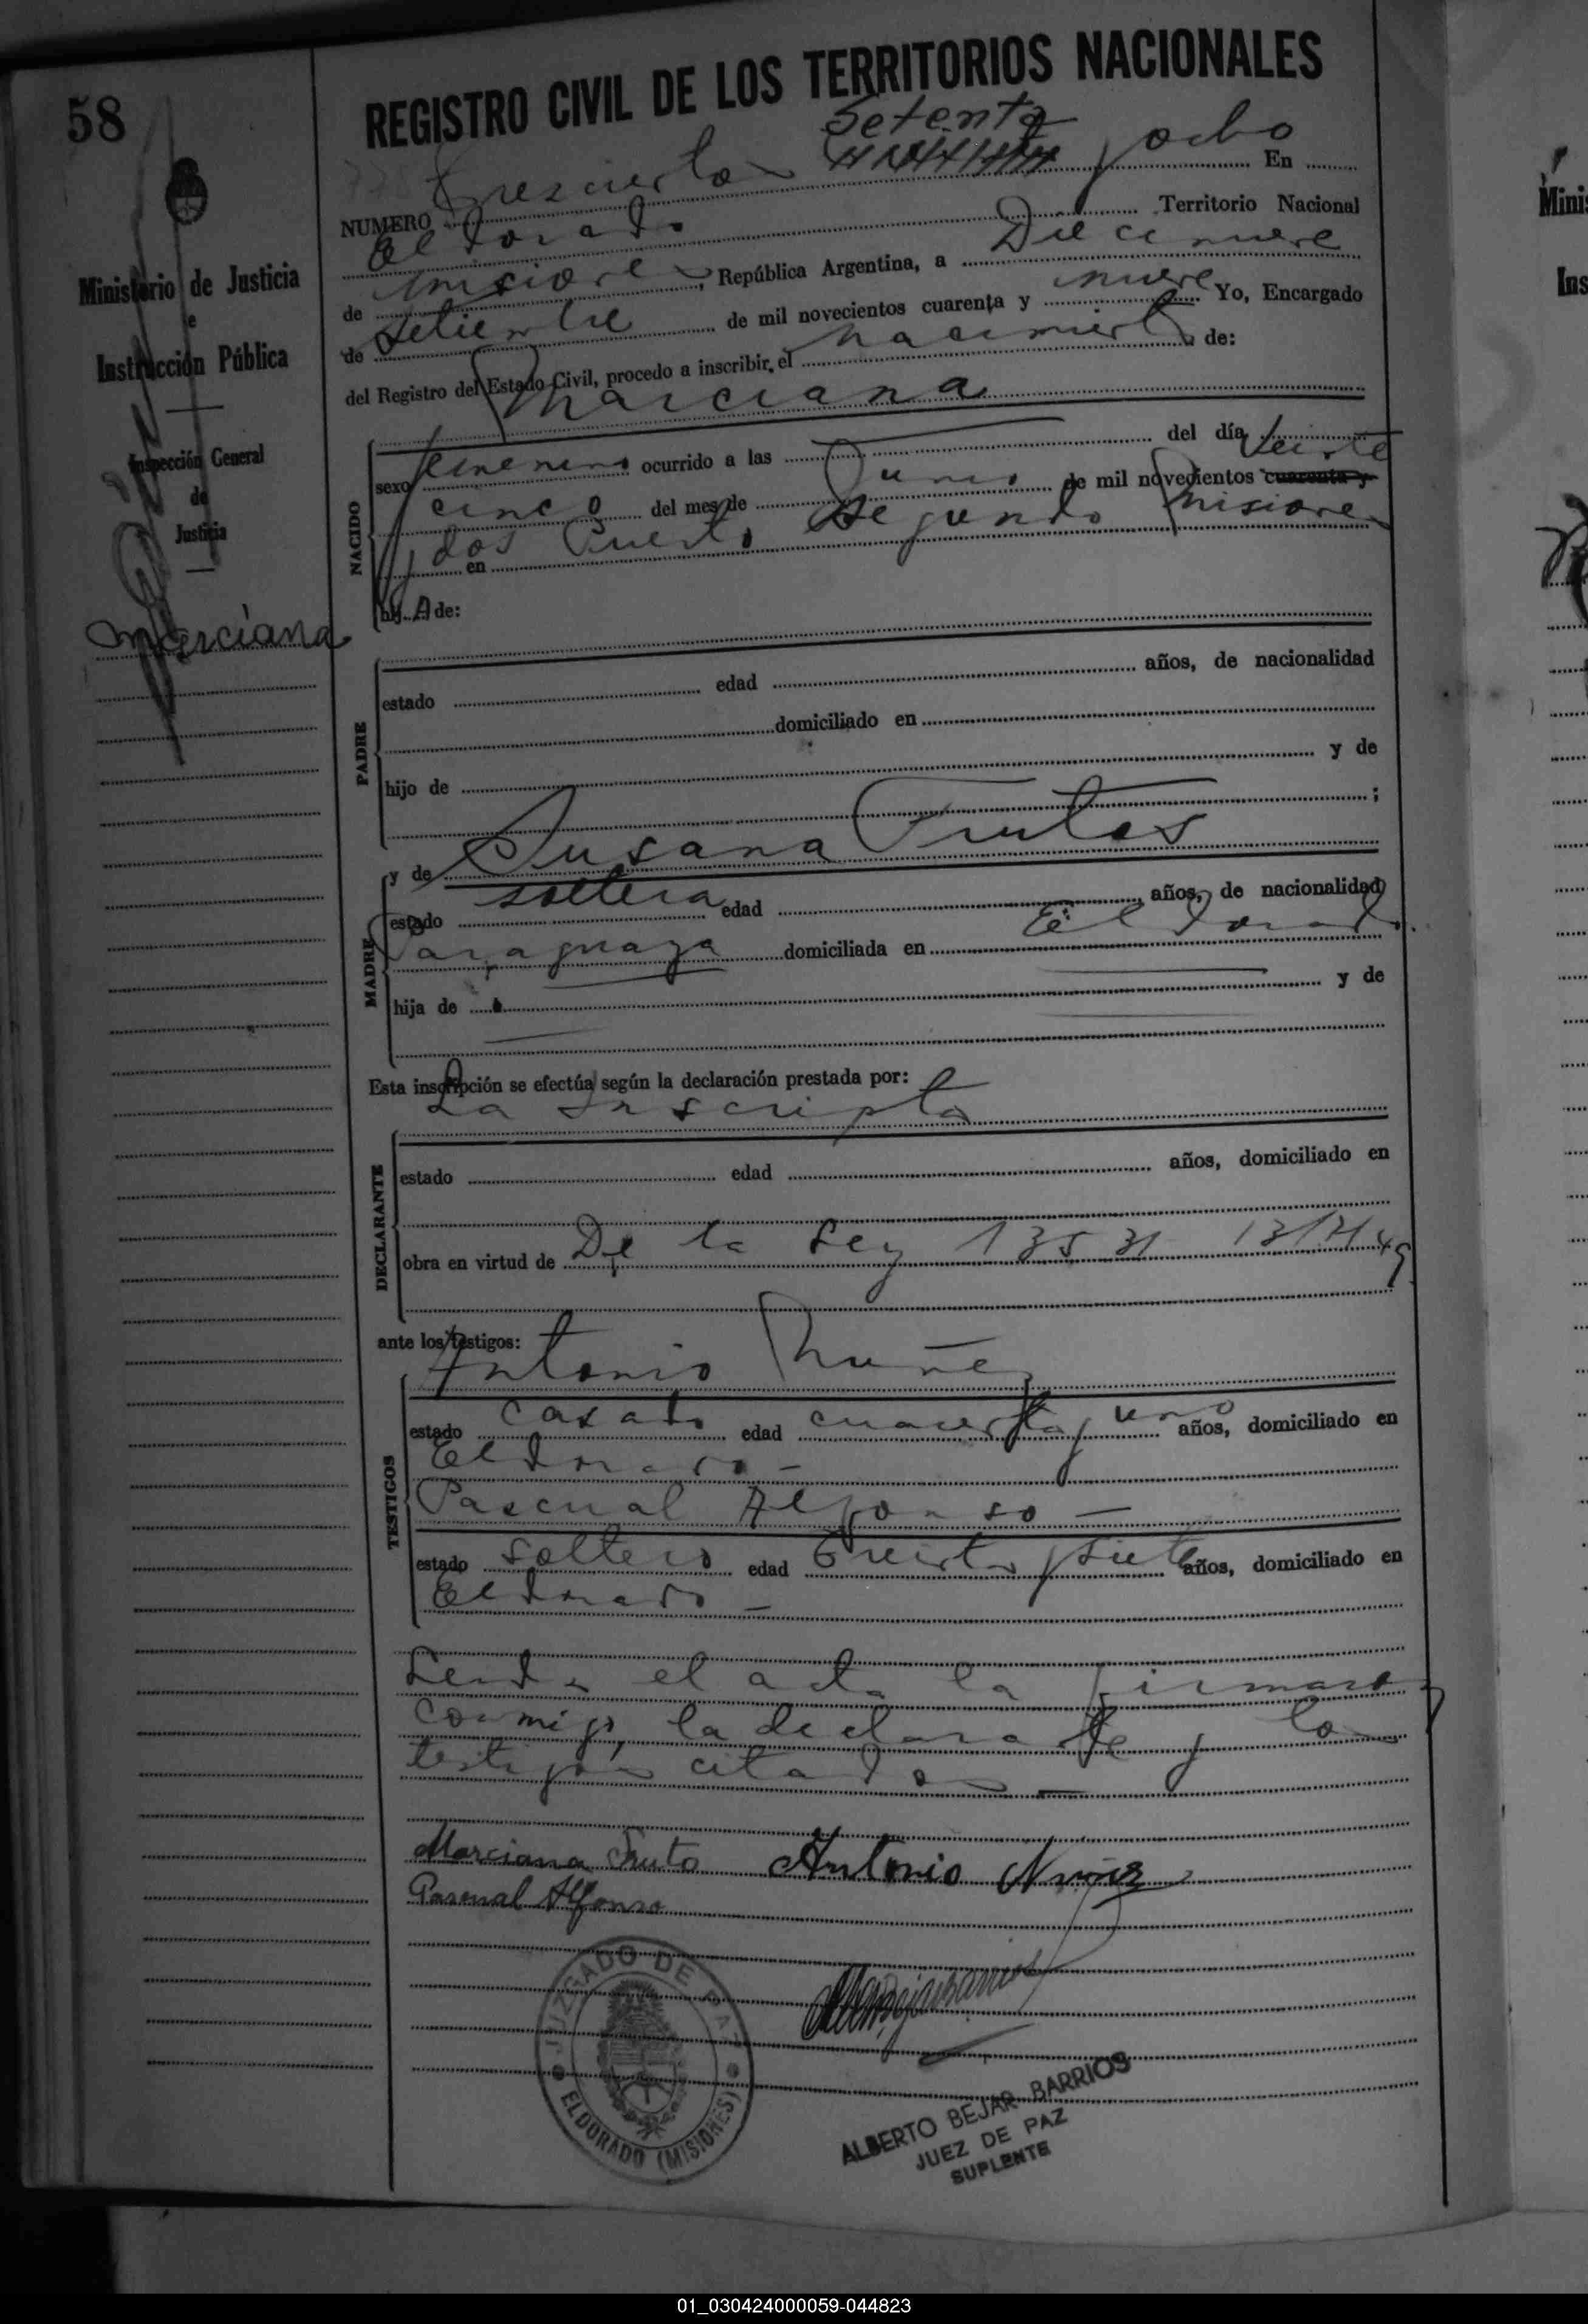 58
REGISTRO CIVIL DE LOS TERRITORIOS NACIONALES
Setenta
NUMERO Trescientos y ocho En
El Dorado Territorio Nacional
de Misiones, República Argentina, a Diecinueve
de Setiembre de mil novecientos cuarenta y nueve Yo, Encargado
del Registro del Estado Civil, procedo a inscribir, el nacimiento de:
Marciana
NACIDO
sexo femenino ocurrido a las del día Veinte
y cinco del mes de Junio de mil novecientos cuarenta y
y dos en Puerto Segundo Misiones
hijA de:
Ministerio de Justicia
e
Instrucción Pública
Inspección General
de
Justicia
Marciana
PADRE
estado edad años, de nacionalidad
domiciliado en
hijo de y de
;
MADRE
y de Susana Frutos
estado soltera edad años, de nacionalidad
Paraguaya domiciliada en El Dorado
hija de y de
Esta inscripción se efectúa según la declaración prestada por:
La Inscripta
DECLARANTE
estado edad años, domiciliado en
obra en virtud de De la Ley 13531 49
ante los testigos:
Antonio Nuñez
TESTIGOS
estado casado edad cuarenta y uno años, domiciliado en
Eldorado -
Pascual Alfonso -
estado soltero edad Treinta y siete años, domiciliado en
Eldorado -
Leida el acta la firmaron
conmigo, la declarante y los
testigos citados -
Marciana Fruto Antonio Nuñez
Pascual Alfonso
JUZGADO DE PAZ
ELDORADO (MISIONES)
ALBERTO BEJAR BARRIOS
JUEZ DE PAZ
SUPLENTE
Minis
Ins
01_030424000059-044823